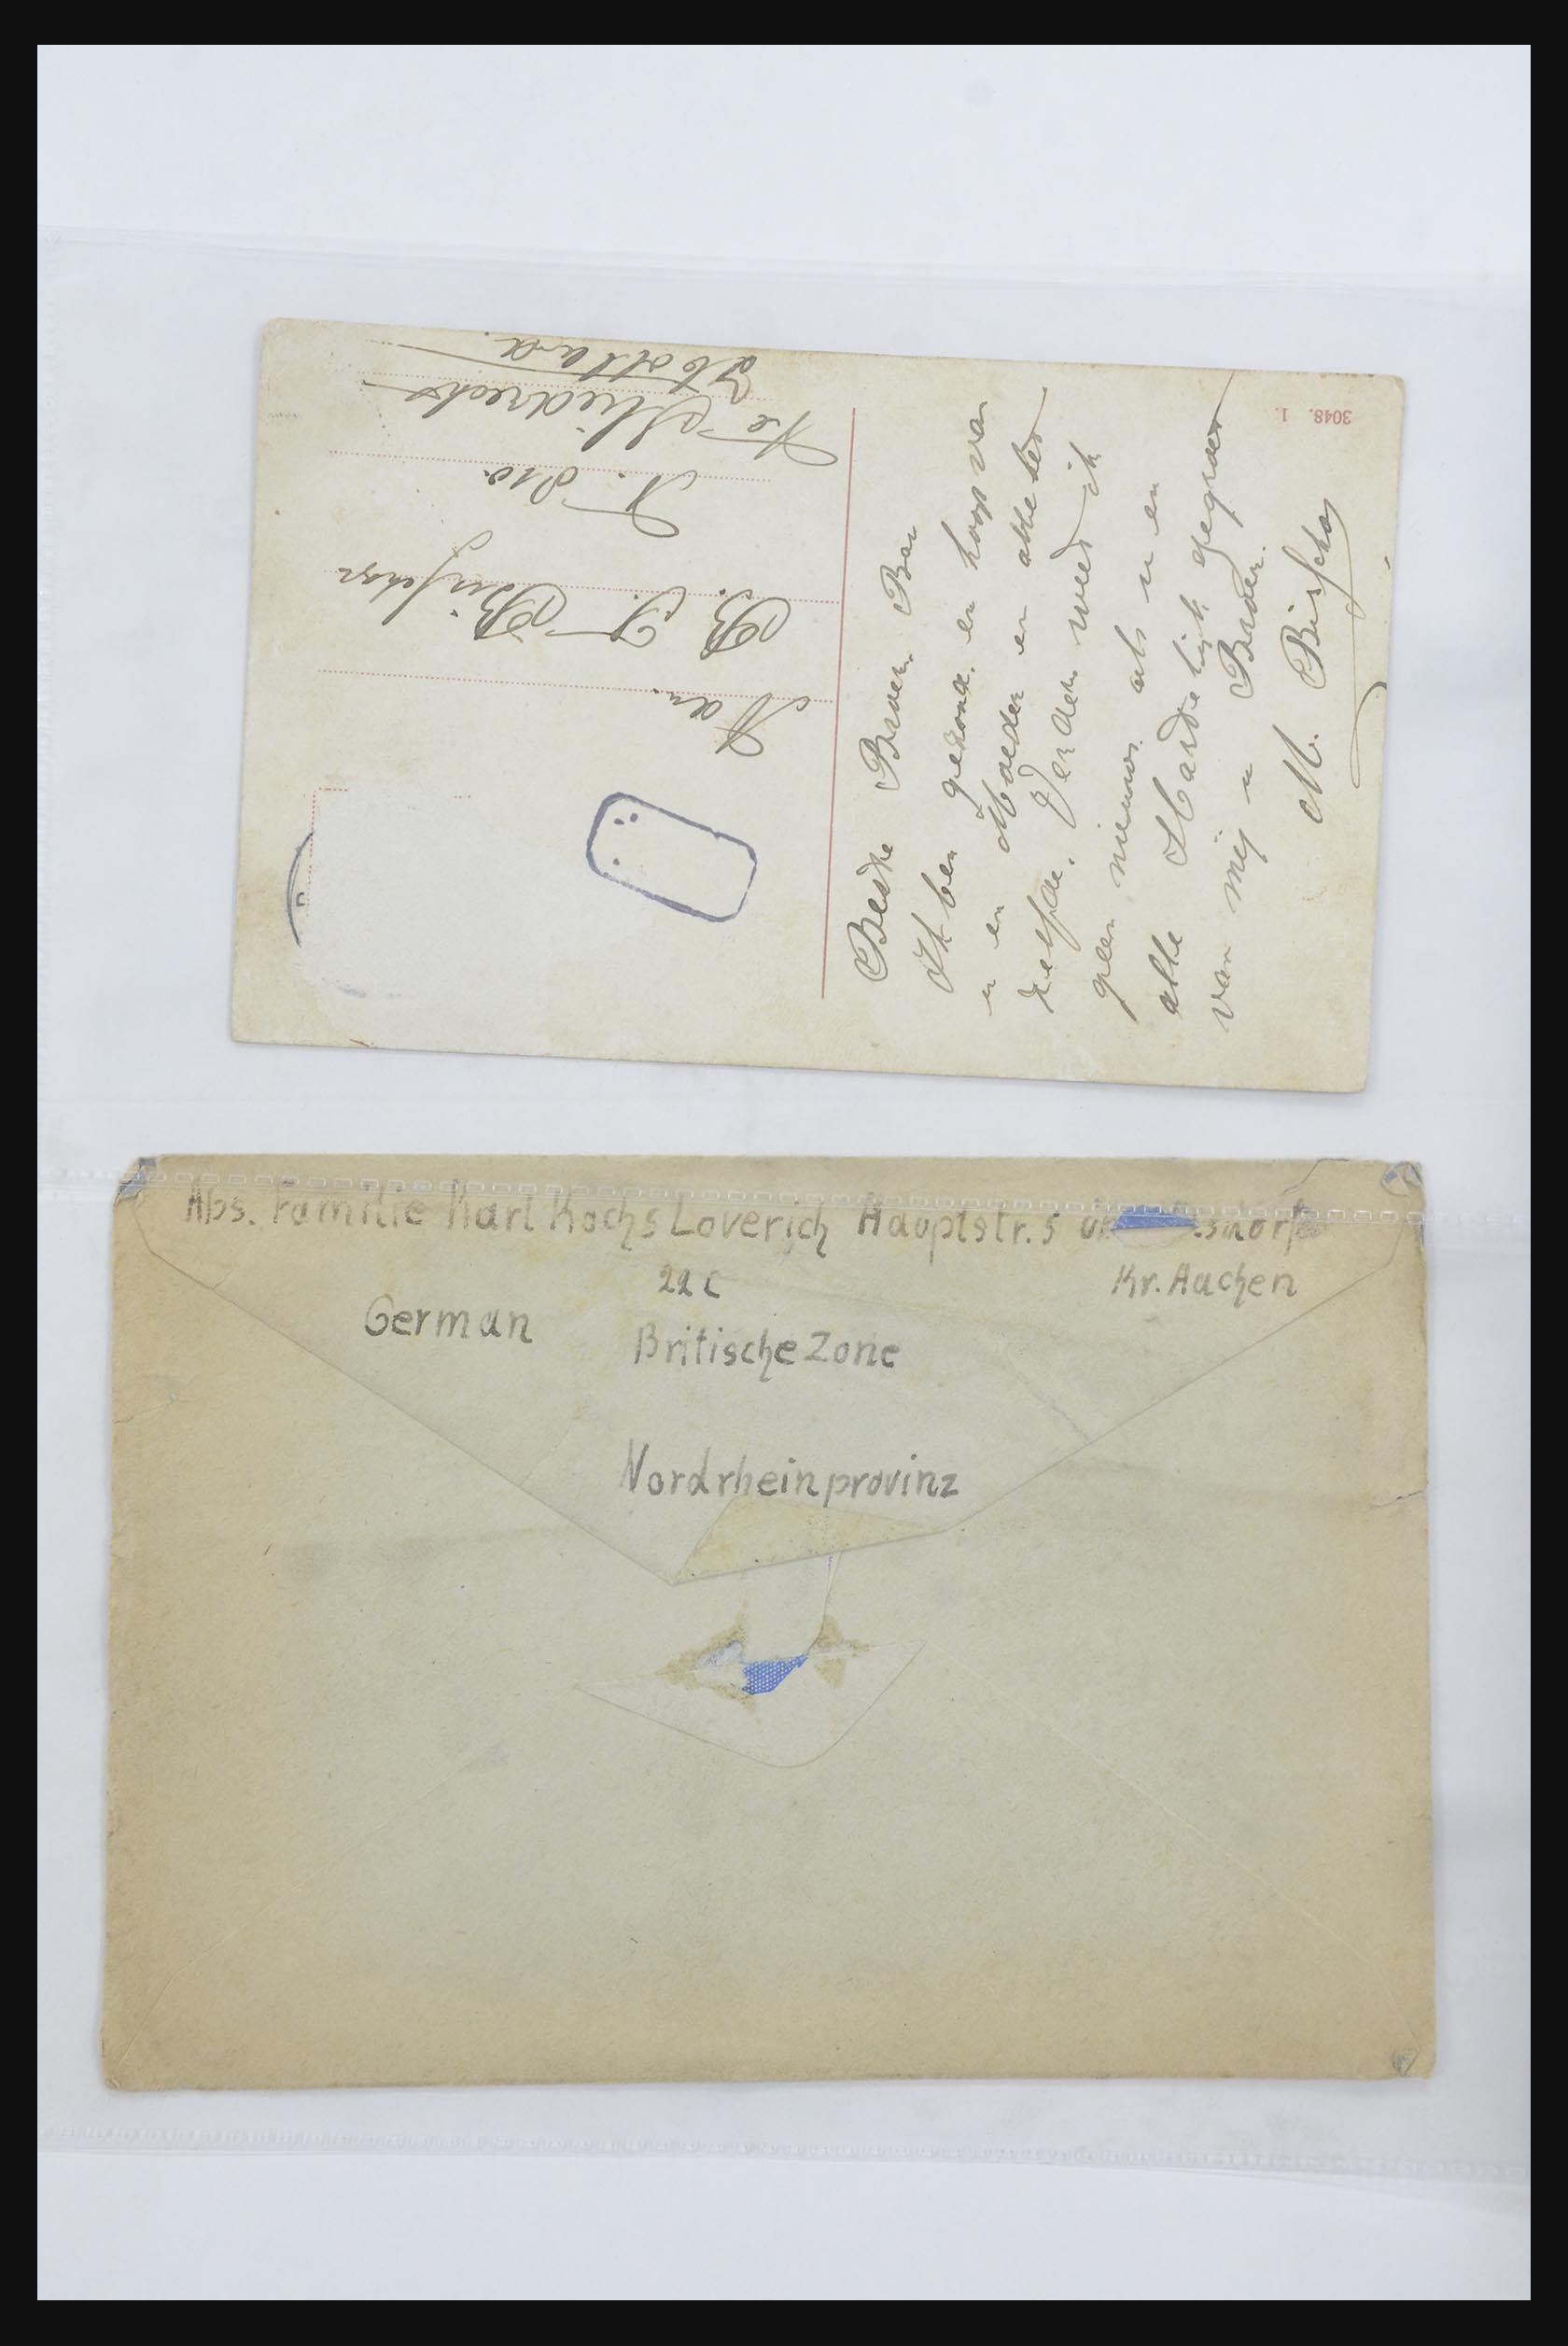 3048. 1.
Aan.
B. J. Bisschop
A. 210.
Te Mijdrecht
Holland
Beste Broer Bar
Ik ben gezond. en hoop van
u en Moeder en alle het
zelfde. Verder weet ik
geen nieuws. als u en
alle Hartelijk gegroet
van mij u Broer.
M. Bisschop
Abs. Familie Karl Kochs Loverich Hauptstr. 5
22 c
Kr. Aachen
German
Britische Zone
Nordrheinprovinz